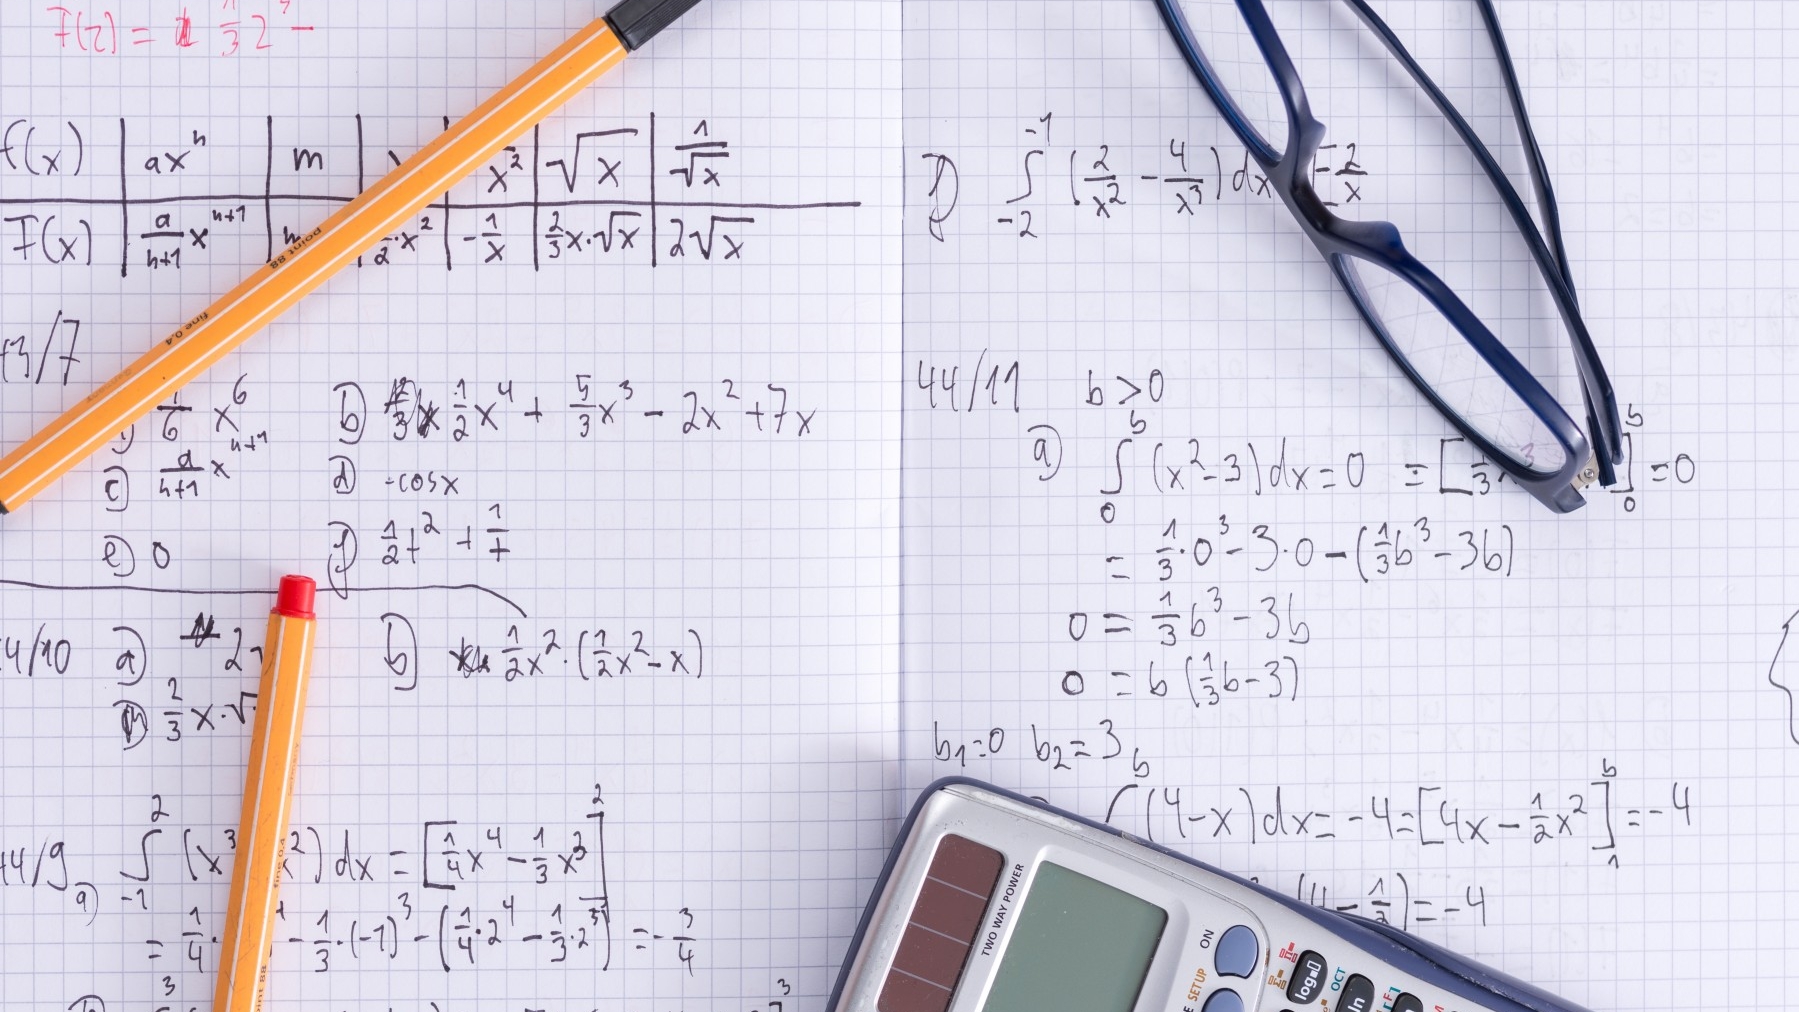 F(2) = 1/3 2³ −
f(x) | axⁿ | m | x² | √x | 1/√x
F(x) | a/n+1 xⁿ⁺¹ | /2·x² | -1/x | 2/3x·√x | 2√x
point 88
fine 0.4
/7
1/6 x⁶ b) 1/2x⁴ + 5/3x³ − 2x² + 7x
c) a/n+1 xⁿ⁺¹ d) -cosx
e) 0 f) 1/2t² + 1/t
4/10 a) 2 b) 1/2x²·(1/2x²-x)
2/3 x·√
44/9 a) ∫₋₁² (x³ x²) dx = [1/4x⁴ − 1/3x³]²
= 1/4· − 1/3·(-1)³ − (1/4·2⁴ − 1/3·2³) = -3/4
f) ∫₋₂⁻¹ (2/x² − 4/x³) dx -2/x
44/11 b>0
a) ∫₀ᵇ (x²-3)dx=0 = [1/3x³ ]₀ᵇ =0
= 1/3·0³-3·0-(1/3b³-3b)
0 = 1/3b³-3b
0 = b(1/3b-3)
b₁=0 b₂=3
∫ᵇ (4-x)dx=-4=[4x-1/2x²]₁ᵇ=-4
(4-1/2)=-4
TWO WAY POWER
ON
SETUP
log
OCT
ln